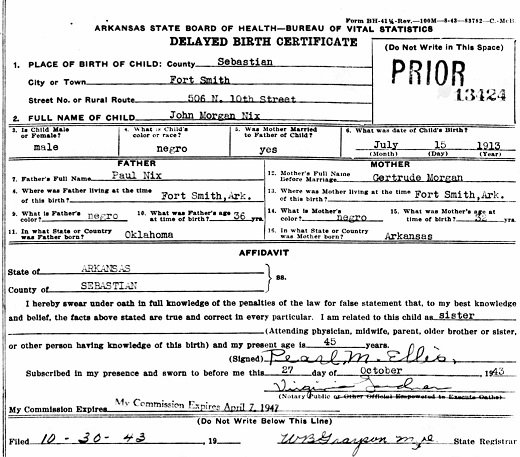 Form BH-41½-Rev.—100M—8-43—83782—C.-McB.
ARKANSAS STATE BOARD OF HEALTH—BUREAU OF VITAL STATISTICS
DELAYED BIRTH CERTIFICATE
(Do Not Write in This Space)
PRIOR
13424
1. PLACE OF BIRTH OF CHILD: County Sebastian
City or Town Fort Smith
Street No. or Rural Route 506 N. 10th Street
2. FULL NAME OF CHILD John Morgan Nix
3. Is Child Male or Female? male
4. What is Child's color or race? negro
5. Was Mother Married to Father of Child? yes
6. What was date of Child's Birth?
July 15 1913
(Month) (Day) (Year)
FATHER
7. Father's Full Name Paul Nix
8. Where was Father living at the time of this birth? Fort Smith, Ark.
9. What is Father's color? negro
10. What was Father's age at time of birth? 36 yrs.
11. In what State or Country was Father born? Oklahoma
MOTHER
12. Mother's Full Name Before Marriage. Gertrude Morgan
13. Where was Mother living at the time of this birth? Fort Smith, Ark.
14. What is Mother's color? negro
15. What was Mother's age at time of birth? yrs.
16. In what State or Country was Mother born? Arkansas
AFFIDAVIT
State of ARKANSAS
County of SEBASTIAN
ss.
I hereby swear under oath in full knowledge of the penalties of the law for false statement that, to my best knowledge
and belief, the facts above stated are true and correct in every particular. I am related to this child as sister
(Attending physician, midwife, parent, older brother or sister,
or other person having knowledge of this birth) and my present age is 45 years.
(Signed) Pearl M. Ellis,
Subscribed in my presence and sworn to before me this 27 day of October, 1943
Virginia
(Notary Public or Other Official Empowered to Execute Oaths)
My Commission Expires My Commission Expires April 7, 1947
(Do Not Write Below This Line)
Filed 10-30-43, 19 W B Grayson M.D. State Registrar